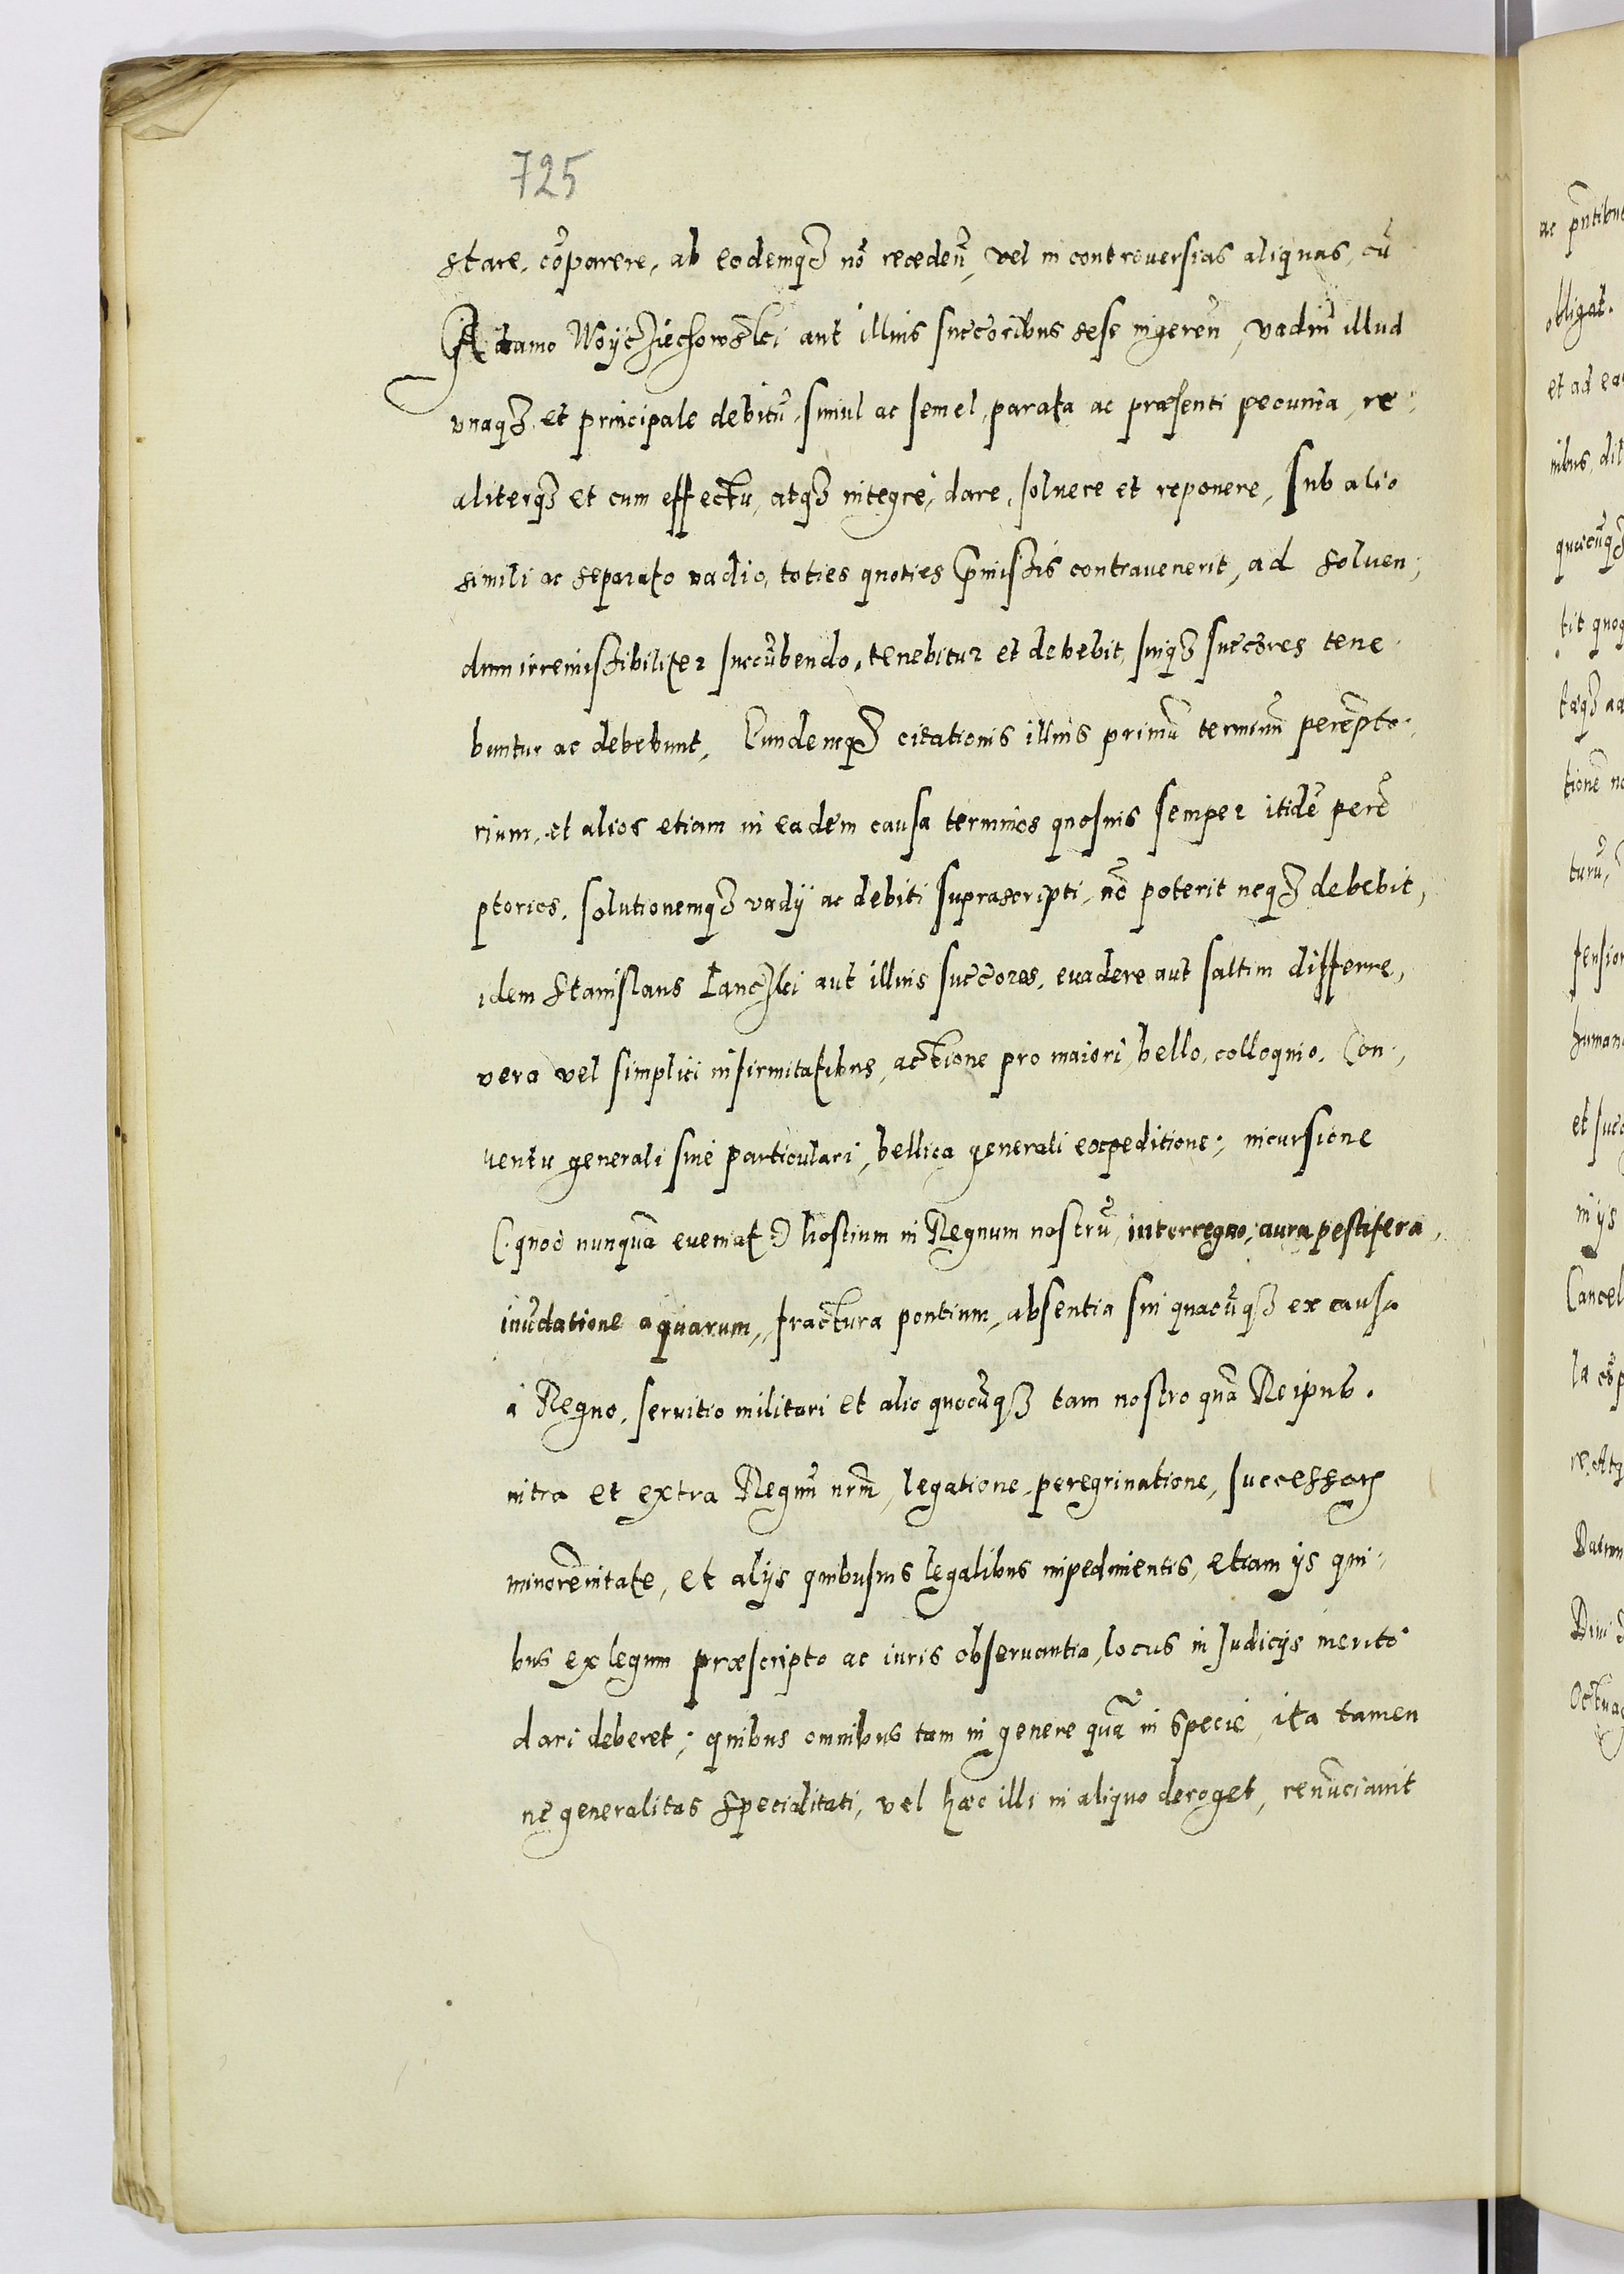 725
stare, cõparere, ab eodemq3 nõ recedeñ, vel in controuersias aliquas, cũ
Adamo Woyczięchowski aut illius succoribus sese ingereñ, vadiũ illud
vnaq3 et principale debitũ, simul ac semel, parata ac præsenti pecunia, re
aliterq3 et cum effectu, atq3 integrè, dare, soluere et reponere, Sub alio
simili ac separato vadio, toties quoties p̃missis contrauenerit, ad soluen,
dum irremissibiliter succũbendo, tenebitur et debebit, suiq3 succores tene
buntur ac debebunt, Eundemq3 citationis illius primũ terminũ perẽpto
rium, et alios etiam in eadem causa terminos quosuis semper itidẽ perẽ
ptorios, solutionemq3 vadÿ ac debiti suprascripti, nõ poterit neq3 debebit,
idem Stanislaus Łanczki aut illius succores, euadere aut saltim differre,
vera vel simplici infirmitatibus, actione pro maiori, bello, colloquio, Con,
uentu generali siue particulari, bellica generali expeditione, incursione
(quod nunquã eueniat) hostium in Regnum nostrũ, interregno, aura pestifera,
inũdatione aquarum, fractura pontium, absentia sui quacũq3 ex causa
à Regno, seruitio militari et alio quocũq3 tam nostro quã Reipub.
intra et extra Regnũ nrm̃, legatione, peregrinatione, successorꝫ
minorẽnitate, et alÿs quibusuis legalibus impedimentis, etiam ÿs qui
bus ex legum præscripto ac iuris obseruantia, locus in Judicÿs meritò
dari deberet, quibus omnibus tam in genere quã in specie, ita tamen
ne generalitas specialitati, vel hæc illi in aliquo deroget, renũciauit